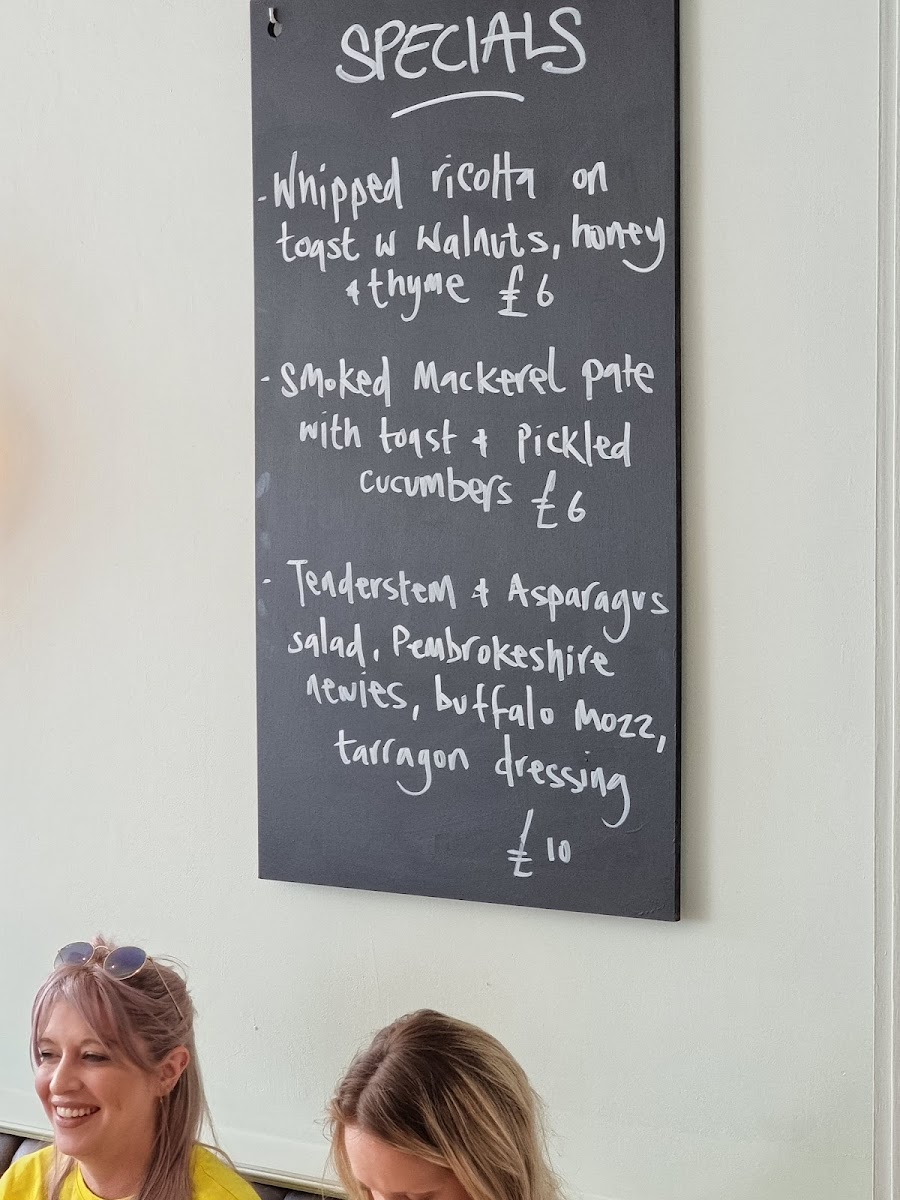 SPECIALS
- Whipped ricotta on
toast w walnuts, honey
& thyme £6
- Smoked Mackerel pate
with toast & Pickled
cucumbers £6
- Tenderstem & Asparagus
salad, Pembrokeshire
newies, buffalo mozz,
tarragon dressing
£10